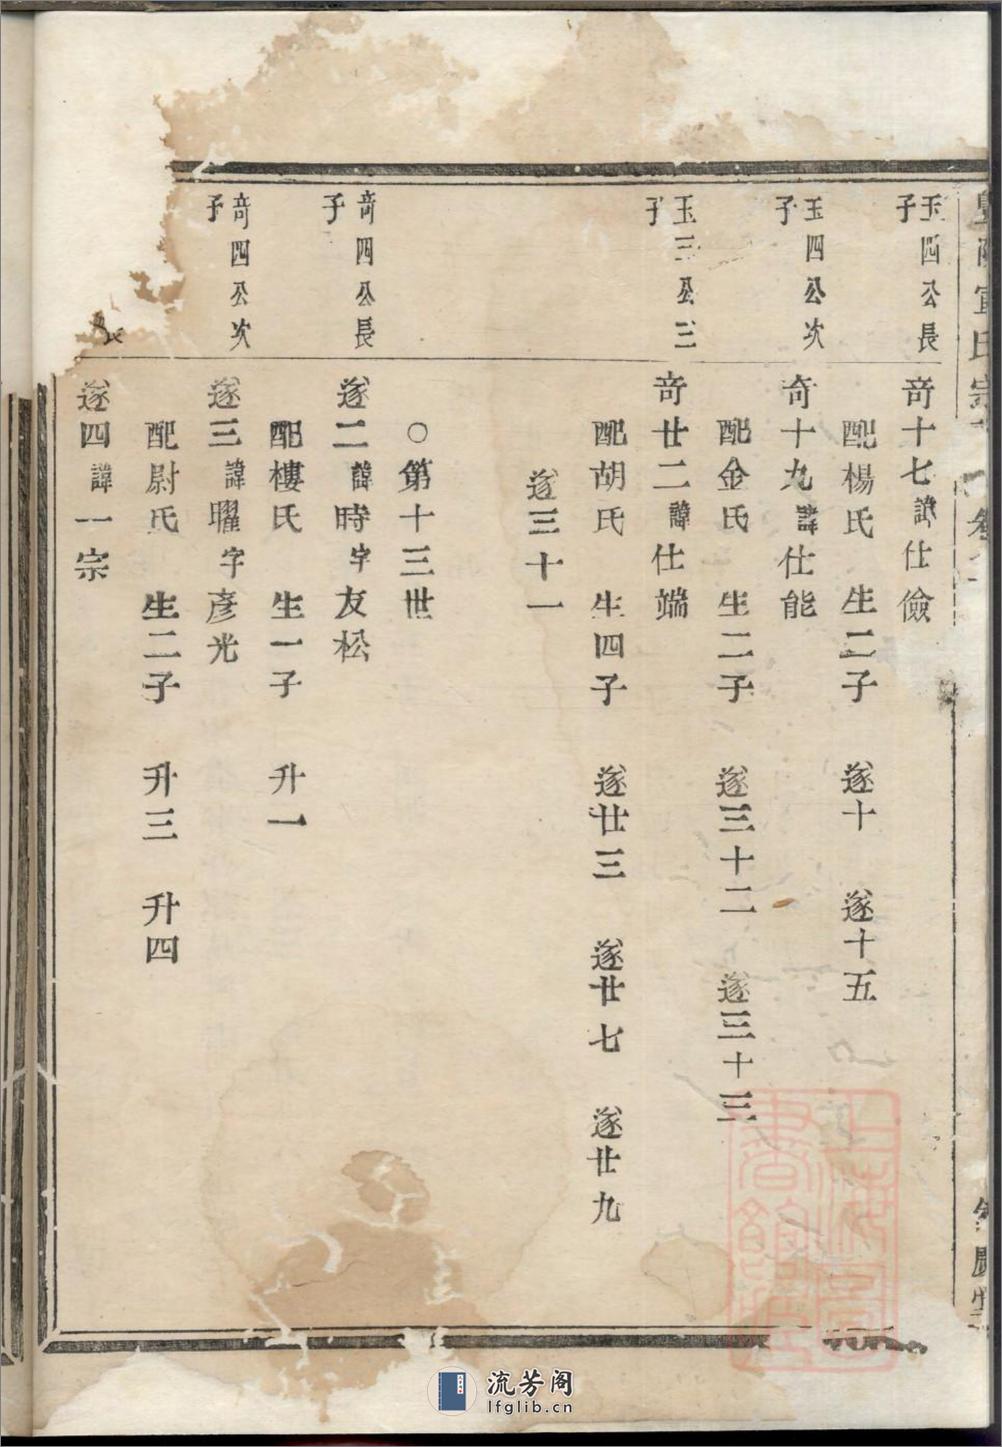 暨陽宣氏宗
玉四公長子
奇十七諱仕儉
配楊氏 生二子 遂十 遂十五
玉四公次子
奇十九諱仕能
配金氏 生二子 遂三十二 遂三十三
玉三公三子
奇廿二諱仕端
配胡氏 生四子 遂廿三 遂廿七 遂廿九
遂三十一
○第十三世
奇四公長子
遂二諱時字友松
配樓氏 生一子 升一
奇四公次子
遂三諱曜字彥光
配尉氏 生二子 升三 升四
遂四諱一宗
流芳阁
lfglib.cn